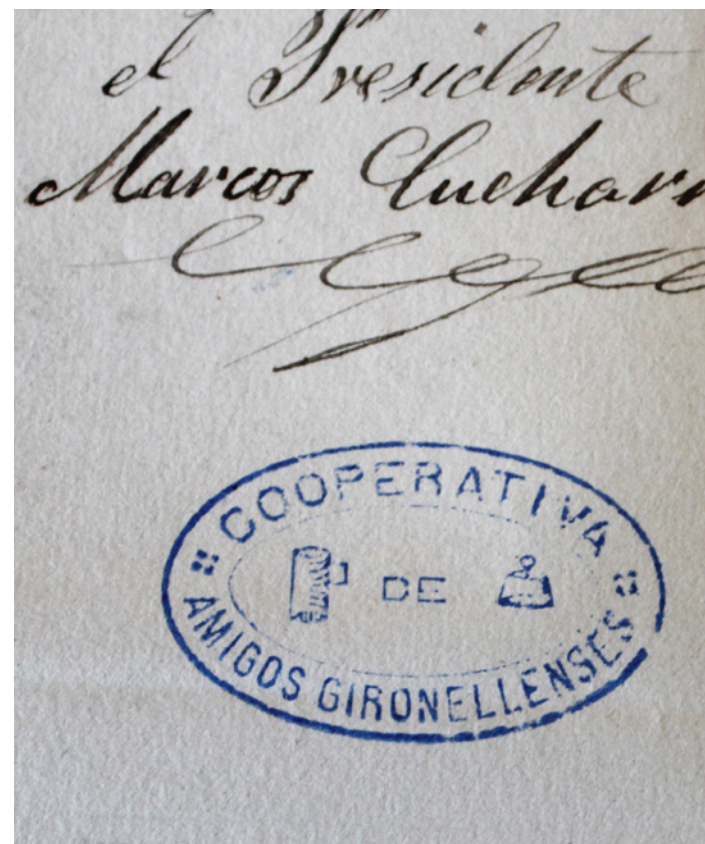 el Presidente
Marcos
COOPERATIVA
DE
AMIGOS GIRONELLENSES